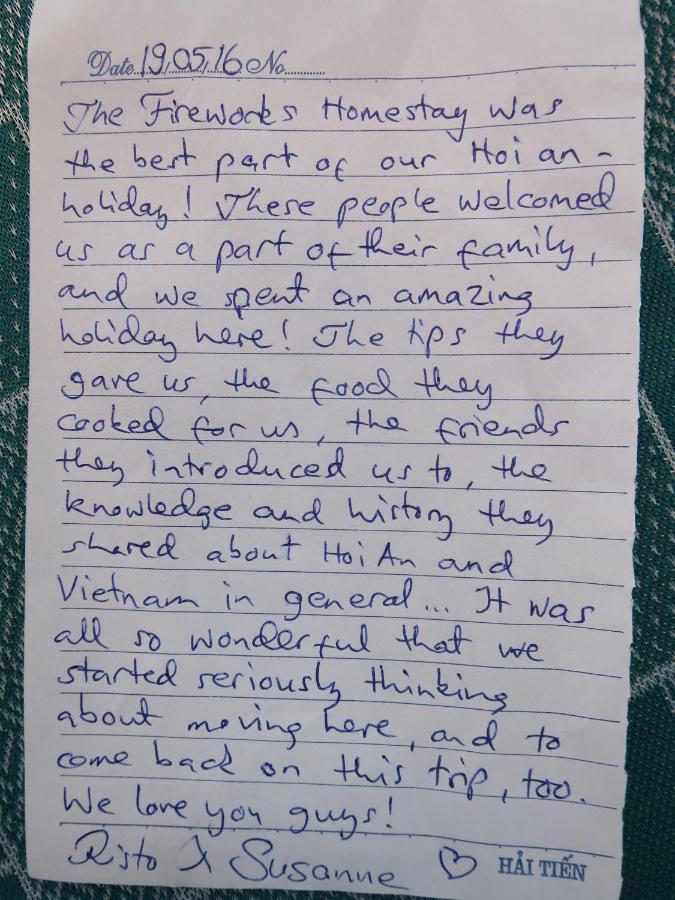 Date 19.05.16 No.
The Fireworks Homestay was
the best part of our Hoi an -
holiday! These people welcomed
us as a part of their family,
and we spent an amazing
holiday here! The tips they
gave us, the food they
cooked for us, the friends
they introduced us to, the
knowledge and history they
shared about Hoi An and
Vietnam in general... It was
all so wonderful that we
started seriously thinking
about moving here, and to
come back on this trip, too.
We love you guys!
Risto & Susanne ♡ HẢI TIẾN